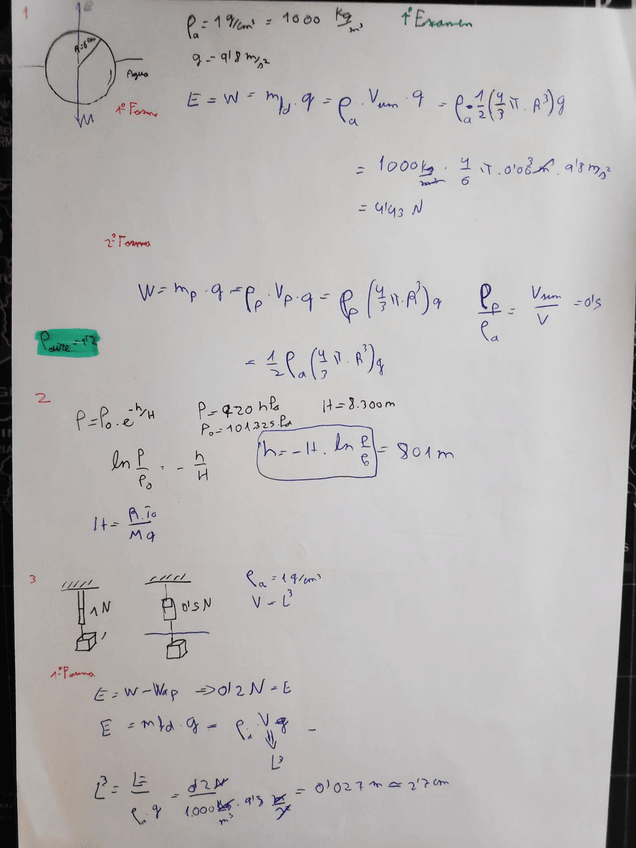 1
E
ρa = 1 g/cm³ = 1000 Kg/m³
1º Examen
g = 9'8 m/s²
Agua
1ª Forma
E = W = mfd · g = ρa · Vsum · g = ρa · 1/2 (4/3 π · R³) g
= 1000 kg/m³ · 4/6 π · 0'06³ m³ · 9'8 m/s²
= 4'43 N
2ª Forma
W = mp · g = ρp · Vp · g = ρp (4/3 π · R³) g
ρp/ρa = Vsum/V = 0'5
= 1/2 ρa (4/3 π · R³) g
2
P = P₀ · e^(-h/H)
P = 920 hPa
H = 8.300 m
P₀ = 101325 Pa
ln P/P₀ = - h/H
h = -H · ln P/P₀ = 801 m
H = R · T₀ / Mg
3
1 N
0'5 N
ρa = 1 g/cm³
V = L³
1ª Forma
E = W - Wap => 0'2 N = E
E = mfd · g = ρ · V g
L³
L³ = E / ρ · g = 0'2 N / 1000 kg/m³ · 9'8 = 0'027 m ≃ 2'7 cm